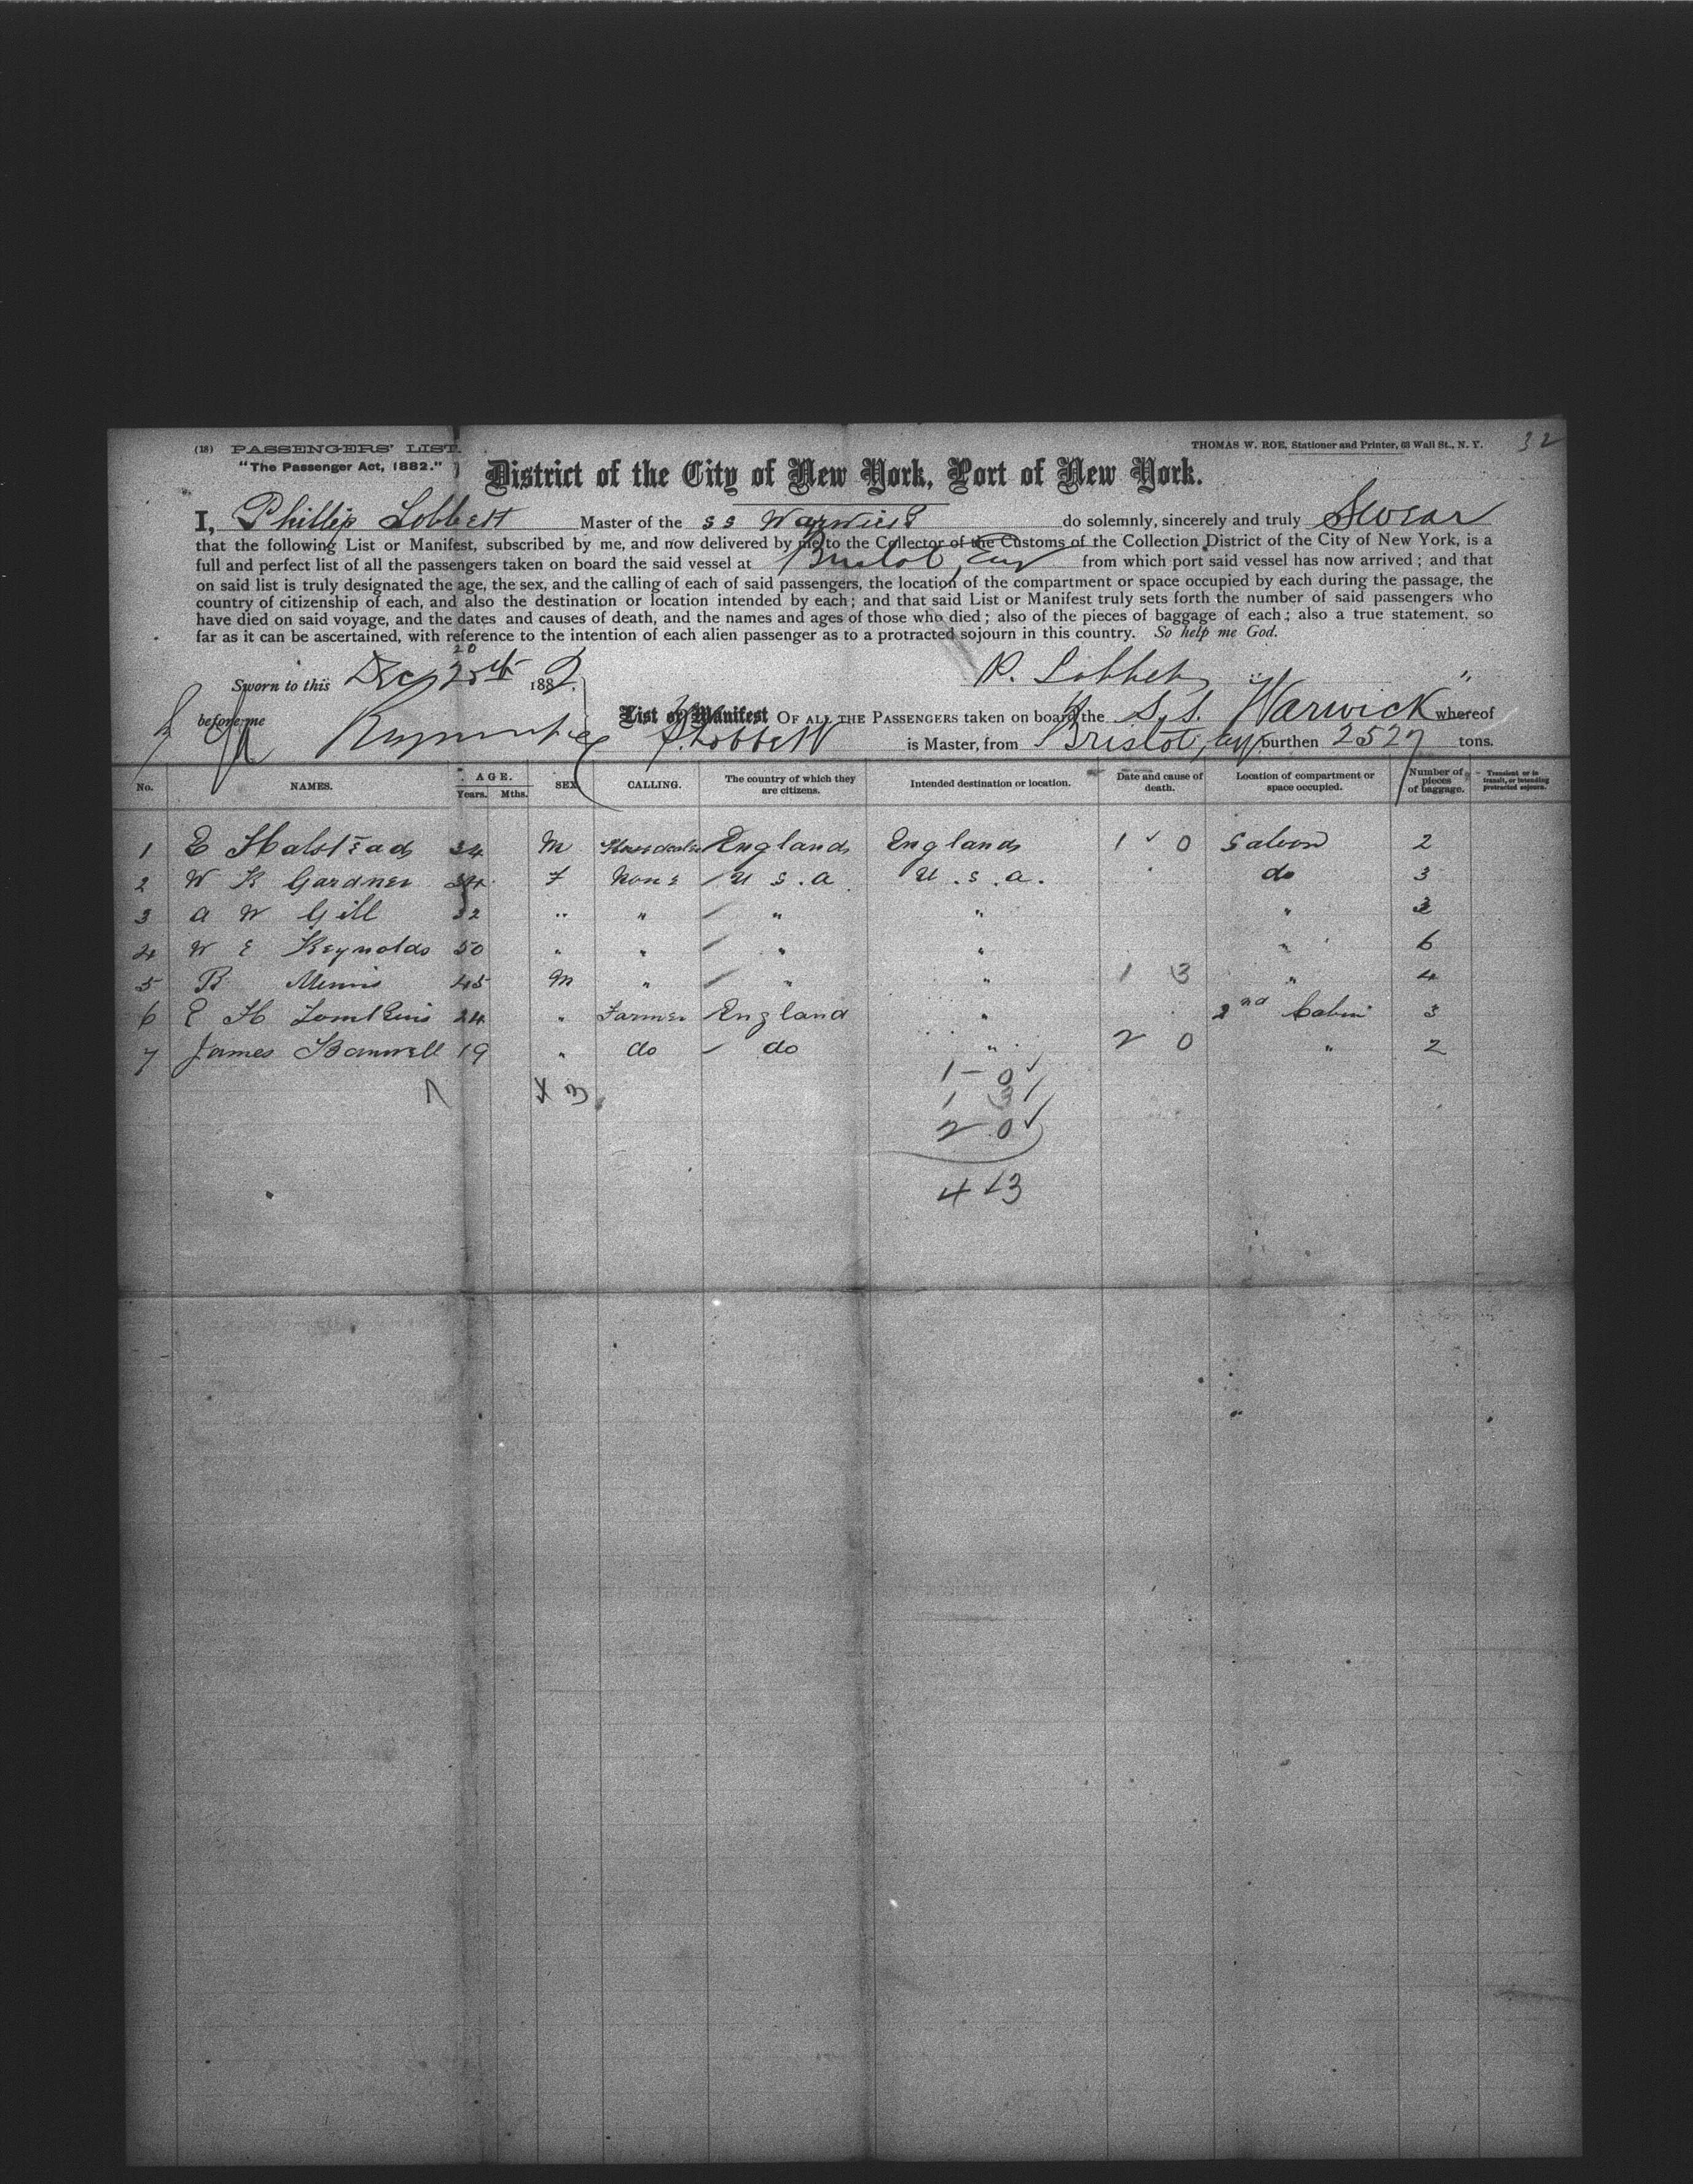 (18) PASSENGERS' LIST.
"The Passenger Act, 1882."
THOMAS W. ROE, Stationer and Printer, 63 Wall St., N. Y.
32
District of the City of New York, Port of New York.
I, Phillip Lobbett Master of the SS Warwick do solemnly, sincerely and truly Swear
that the following List or Manifest, subscribed by me, and now delivered by me to the Collector of the Customs of the Collection District of the City of New York, is a
full and perfect list of all the passengers taken on board the said vessel at Bristol, Eng from which port said vessel has now arrived; and that
on said list is truly designated the age, the sex, and the calling of each of said passengers, the location of the compartment or space occupied by each during the passage, the
country of citizenship of each, and also the destination or location intended by each; and that said List or Manifest truly sets forth the number of said passengers who
have died on said voyage, and the dates and causes of death, and the names and ages of those who died; also of the pieces of baggage of each; also a true statement, so
far as it can be ascertained, with reference to the intention of each alien passenger as to a protracted sojourn in this country. So help me God.
20
Sworn to this Dec 188 P. Lobbett
before me
List or Manifest OF ALL THE PASSENGERS taken on board the S.S. Warwick whereof
P. Lobbett is Master, from Bristol, Eng burthen 2527 tons.
No. NAMES. AGE. Years. Mths. SEX. CALLING. The country of which they are citizens. Intended destination or location. Date and cause of death. Location of compartment or space occupied. Number of pieces of baggage. Transient or in transit, or intending protracted sojourn.
1 E Halstead 34 M England England 1 0 Saloon 2
2 W K Gardner 34 F None U S. A U. S. A. do 3
3 A W Gill 32 " " " " "
4 W E Reynolds 50 " " " " " 6
5 B Minnis 45 M " " " 1 3 " 4
6 E H Tomkins 24 " Farmer England " 2nd Cabin 3
7 James Banwell 19 " do do " 2 0 " 2
1 - 0
7 X 3 1 3
2 0
4 3